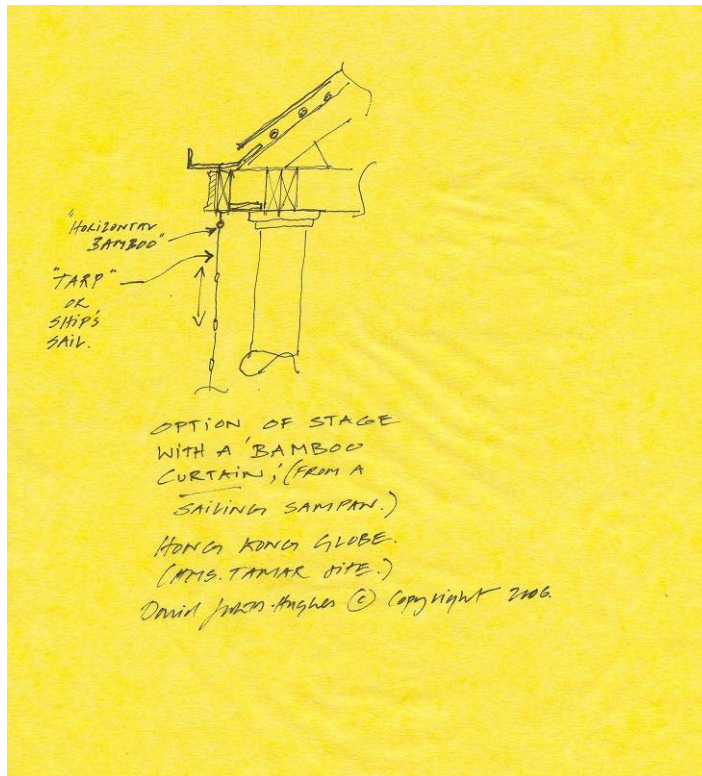 "HORIZONTAL
BAMBOO"
"TARP"
OR
SHIP'S
SAIL.
OPTION OF STAGE
WITH A 'BAMBOO
CURTAIN', (FROM A
SAILING SAMPAN.)
HONG KONG GLOBE.
(HMS. TAMAR SITE.)
David Hughes © Copyright 2006.